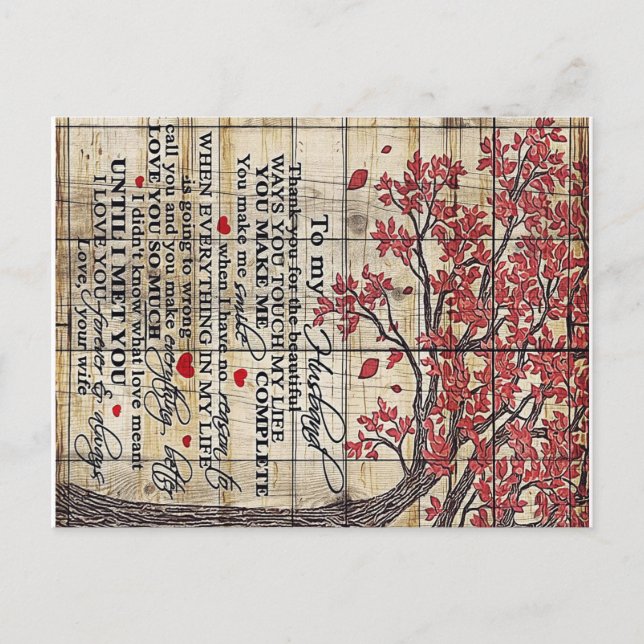 To my Husband
Thank you for the beautiful
WAYS YOU TOUCH MY LIFE
YOU MAKE ME COMPLETE
You make me smile
when I have no reason to
WHEN EVERYTHING IN MY LIFE
is going to wrong
call you and you make everything better
LOVE YOU SO MUCH
I didn't know what love meant
UNTIL I MET YOU
I LOVE YOU forever & always
Love, your wife